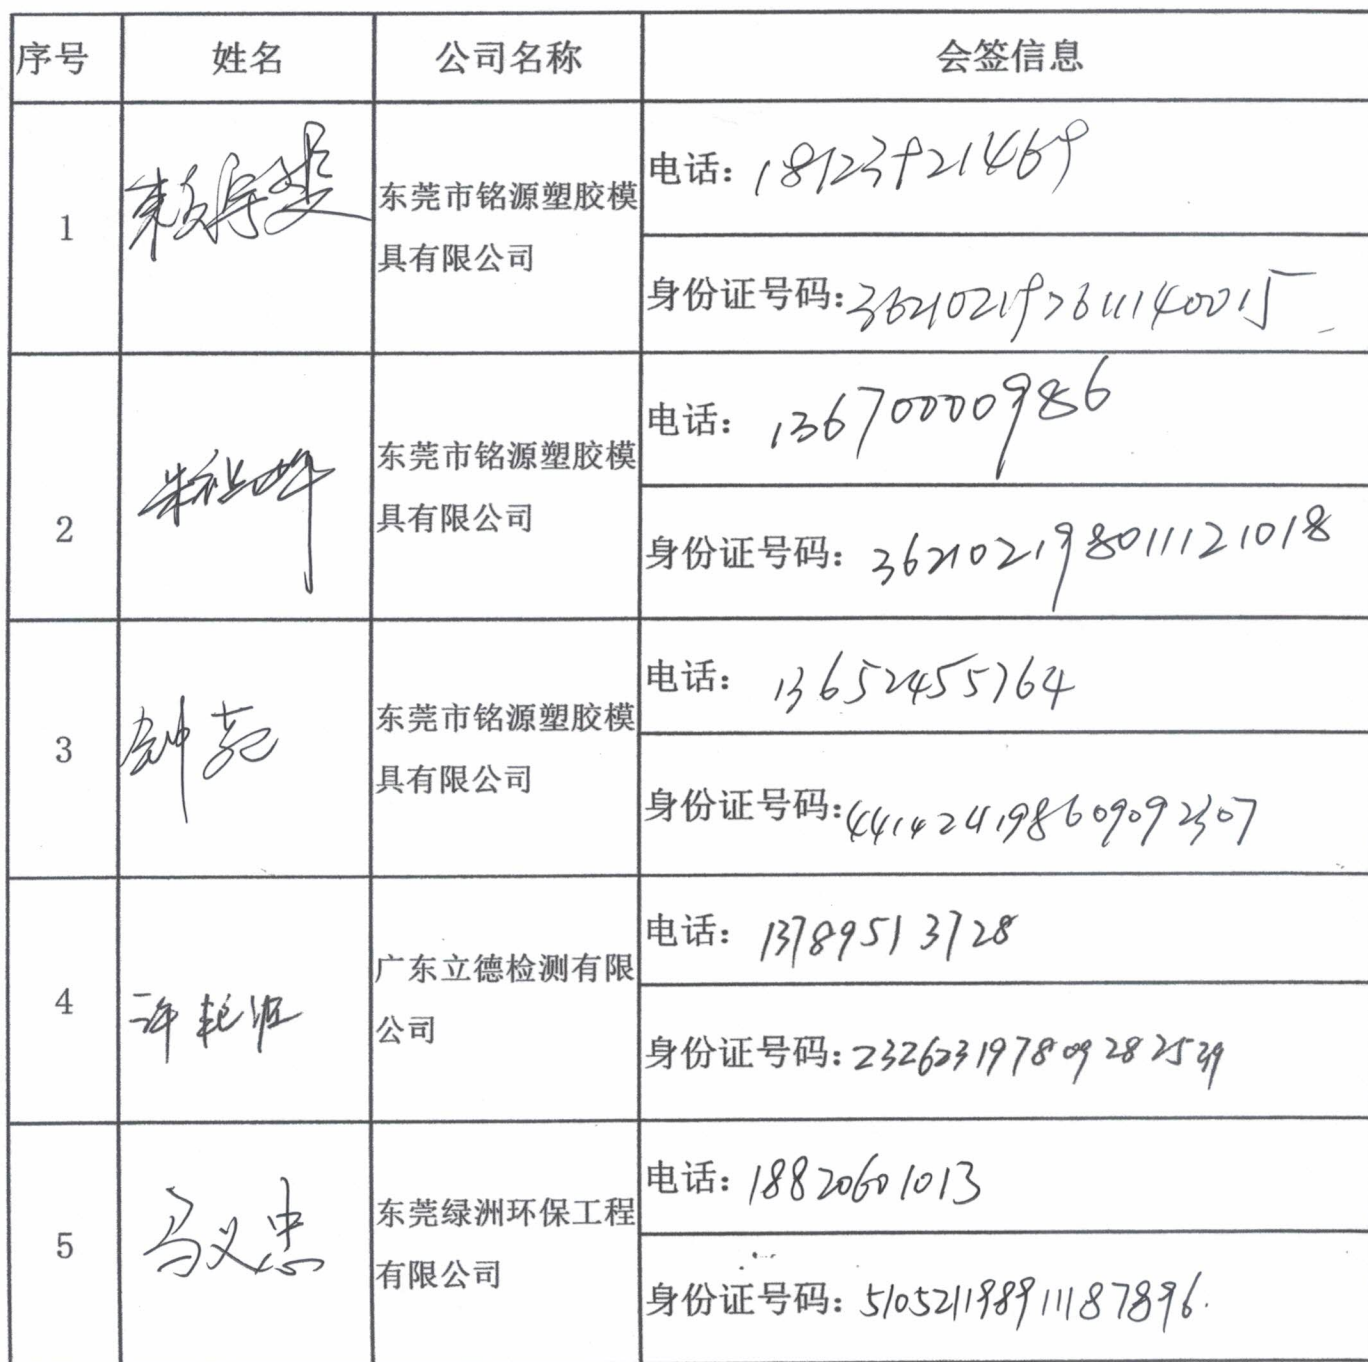 序号 姓名 公司名称 会签信息
1
东莞市铭源塑胶模
具有限公司
电话：18123921469
身份证号码：362102197611140015
2
东莞市铭源塑胶模
具有限公司
电话：13670000986
身份证号码：362102198011121018
3 钟苑
东莞市铭源塑胶模
具有限公司
电话：13652455764
身份证号码：441424198609092307
4
广东立德检测有限
公司
电话：13789513728
身份证号码：232623197809282539
5 马义忠
东莞绿洲环保工程
有限公司
电话：18820601013
身份证号码：510521198911187896.